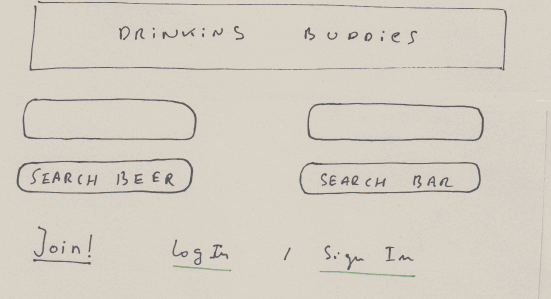 DRINKINS BUDDIES
SEARCH BEER SEARCH BAR
Join! Log In / Sign In